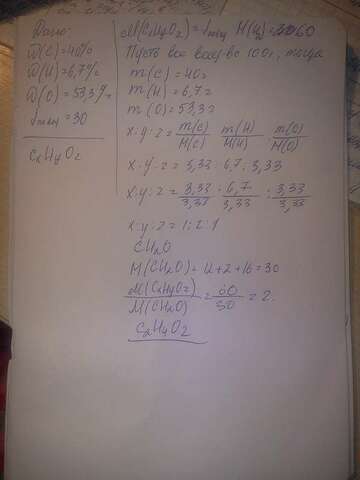 Дано:
W(C)=40%
W(H)=6,7%
W(O)=53,3%
=30
CxHyOz
M(CxHyOz)= M(H2)= 60
Пусть все вещ-во 100г, тогда
m(C)=40г
m(H)=6,7г
m(O)=53,3г
x:y:z = m(C)/M(C) m(H)/M(H) m(O)/M(O)
x:y:z = 3,33:6,7:3,33
x:y:z = 3,33/3,33 : 6,7/3,33 : 3,33/3,33
x:y:z = 1:2:1
CH2O
M(CH2O)=12+2+16=30
M(CxHyOz)/M(CH2O) = 60/30 = 2
C2H4O2